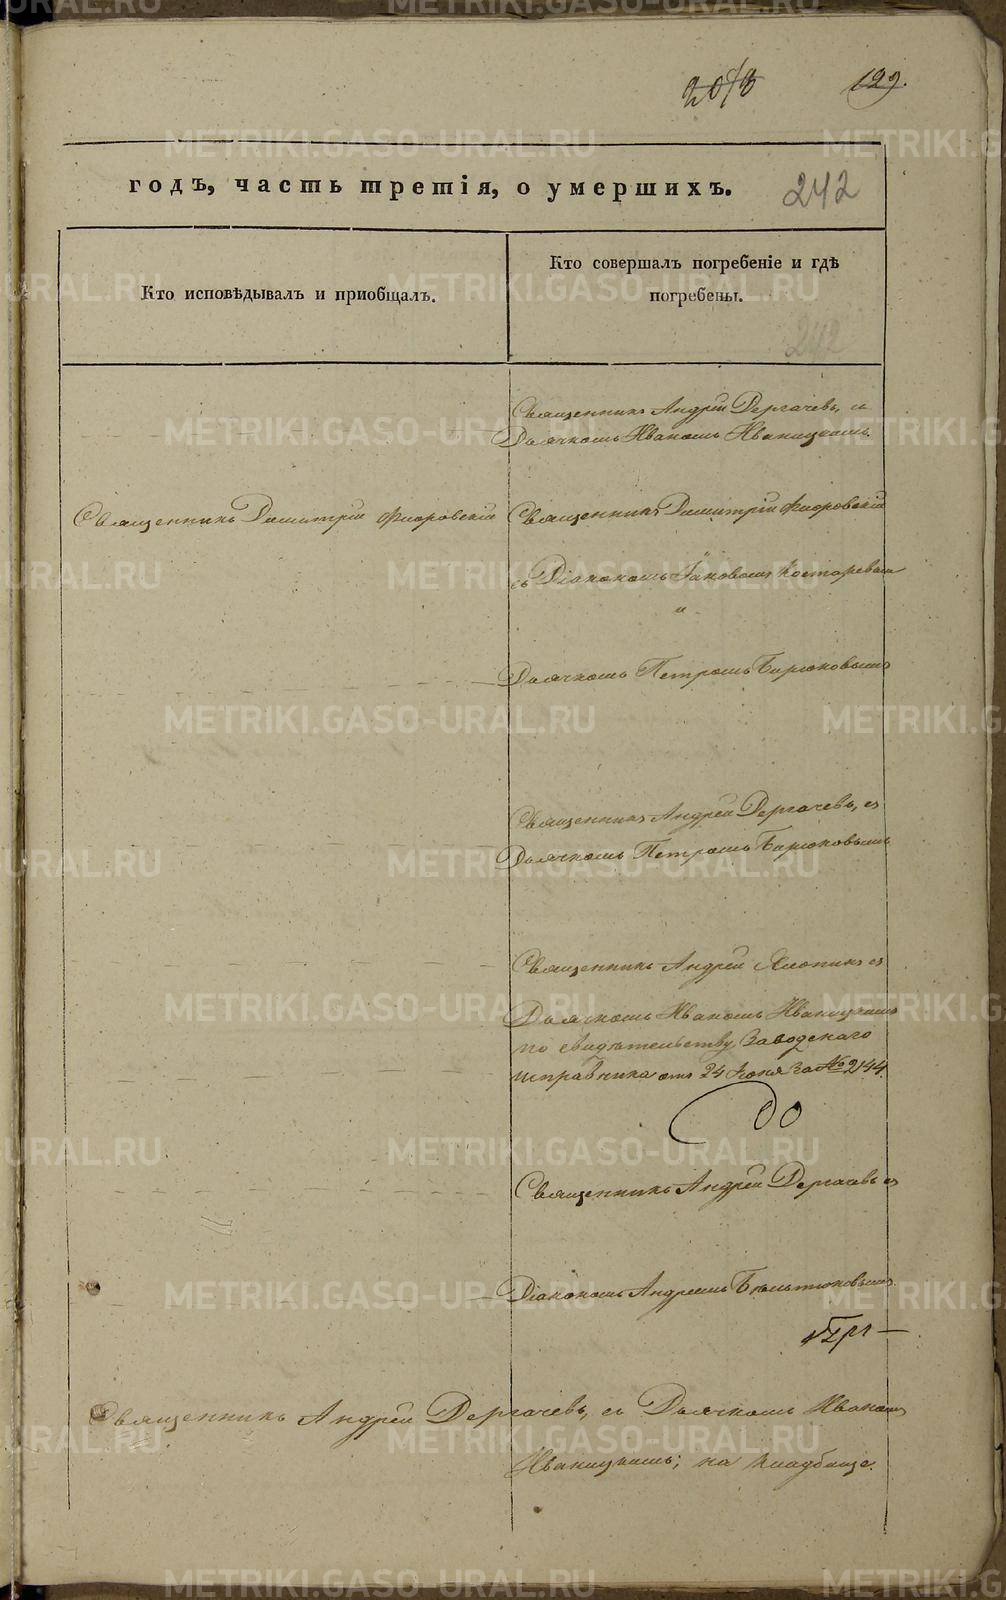 129.
годъ, часть третія, о умершихъ.
242
Кто исповѣдывалъ и пріобщалъ.
Кто совершалъ погребеніе и гдѣ
погребены.
242
Священникъ Андрей Дергачевъ, съ
Дьячкомъ Иваномъ Иваницкимъ.
Священникъ Димитрій Фиоровскій
Священникъ Димитрій Фиоровскій
съ Діакономъ Іаковомъ Костаревымъ
и
Дьячкомъ Петромъ Бирюковымъ
Священникъ Андрей Дергачевъ, съ
Дьячкомъ Петромъ Бирюковымъ
Священникъ Андрей съ
Дьячкомъ Иваномъ Иваницкимъ
по свидѣтельству Заводскаго
исправника отъ 24 Іюня за № 2144.
Священникъ Андрей Дергачевъ съ
Діакономъ Андреемъ
Священникъ Андрей Дергачевъ, съ Дьячкомъ Иваномъ
Иваницкимъ; на кладбище.
METRIKI.GASO-URAL.RU